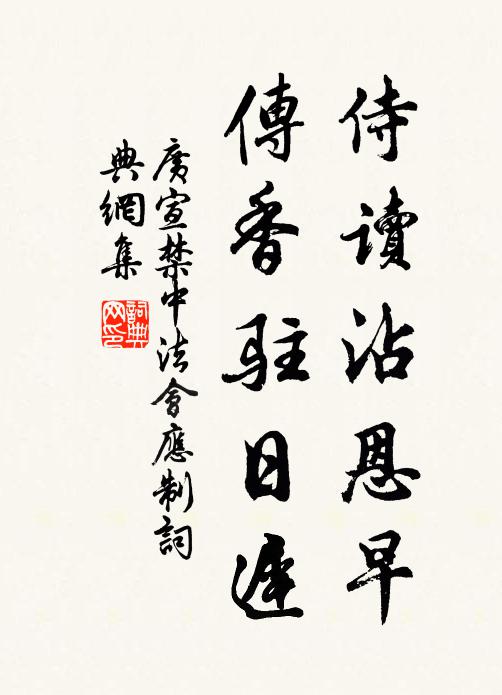 侍讀沾恩早
傳香駐日遲
廣宣禁中法會應制詞
典網集
詞典
网印